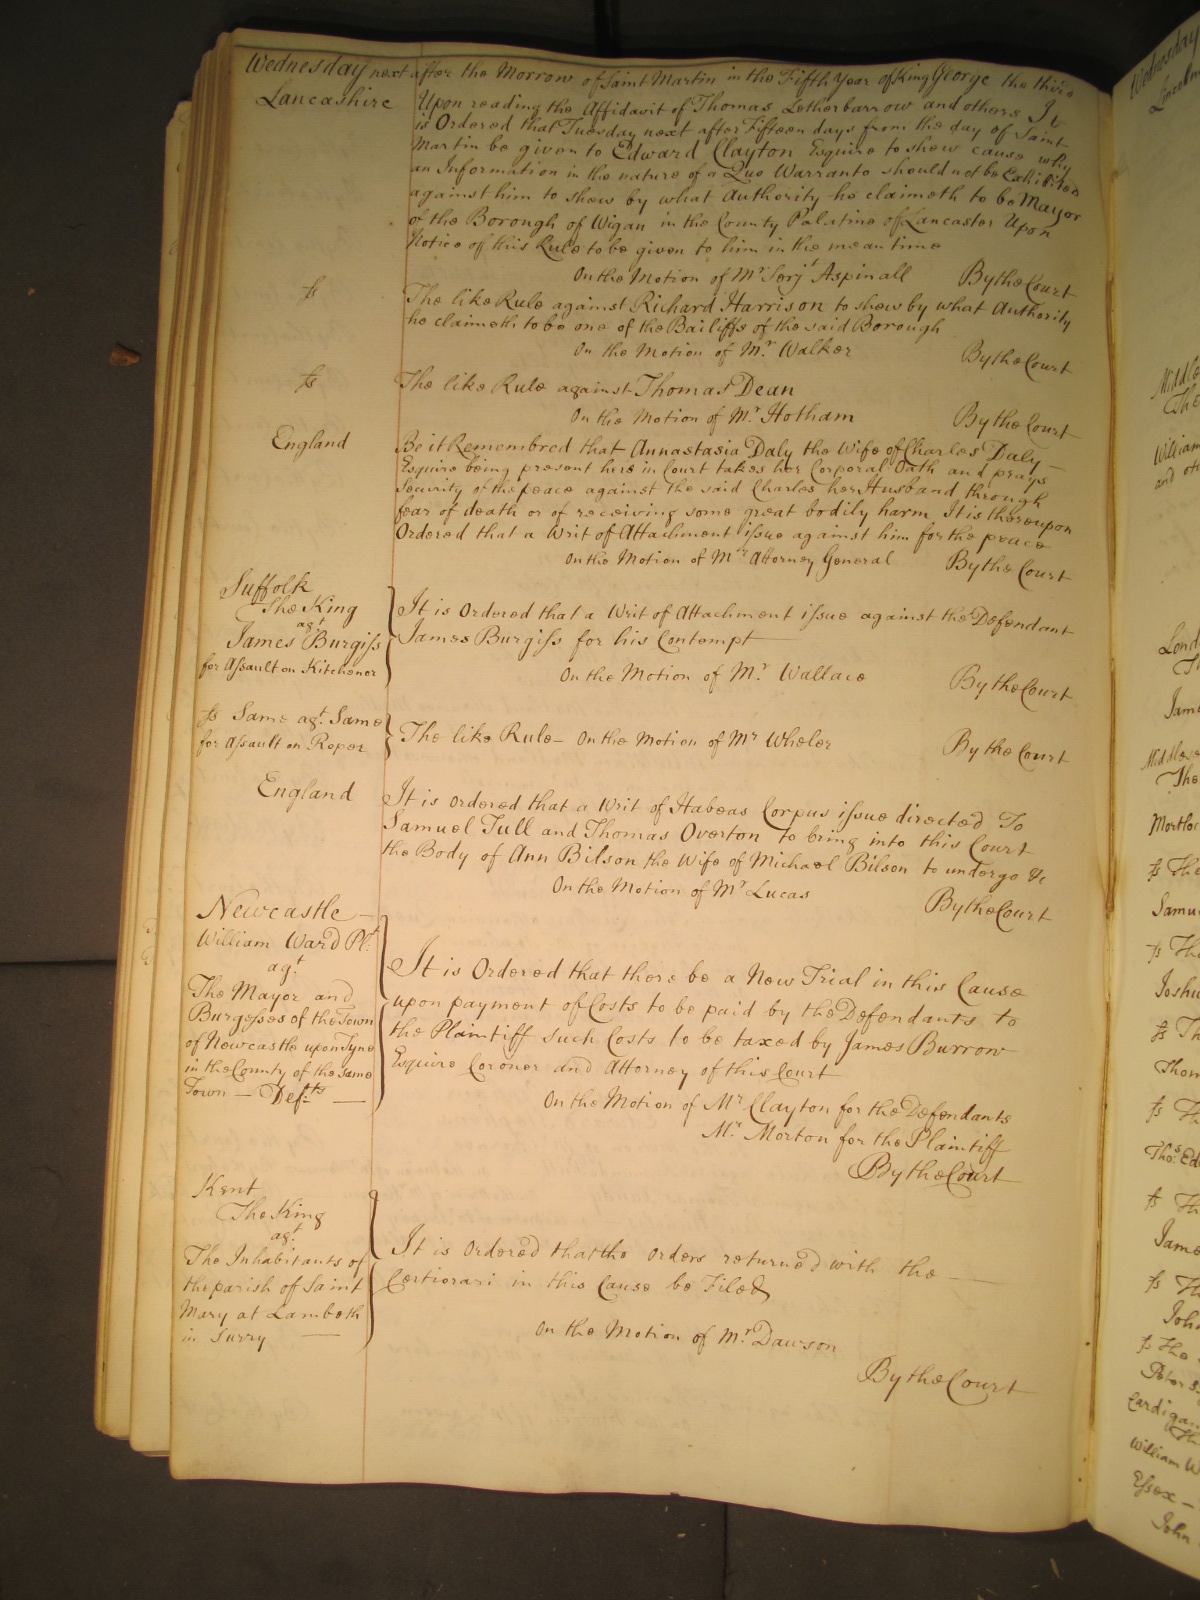 Wednesday next after the Morrow of Saint Martin in the Fifth Year of King George the third
Lancashire
Upon reading the Affidavit of Thomas Letherbarrow and others It
is Ordered that Tuesday next after Fifteen days from the day of Saint
Martin be given to Edward Clayton Esquire to shew cause why
an Information in the nature of a Quo Warranto should not be Exhibited
against him to shew by what Authority he claimeth to be Mayor
of the Borough of Wigan in the County Palatine of Lancaster Upon
Notice of this Rule to be given to him in the mean time
On the Motion of Mr Serjt Aspinall By the Court
The like Rule against Richard Harrison to shew by what Authority
he claimeth to be one of the Bailiffs of the said Borough
On the Motion of Mr. Walker By the Court
The like Rule against Thomas Dean
On the Motion of Mr Hotham By the Court
England
Be it Remembred that Annastasia Daly the Wife of Charles Daly
Esquire being present here in Court takes her Corporal Oath and prays
Security of the peace against the said Charles her Husband through
fear of death or of receiving some great bodily harm It is thereupon
Ordered that a Writ of Attachment issue against him for the peace
On the Motion of Mr Attorney General By the Court
Suffolk
The King
agt.
James Burgiss
for Assault on Kitchener
It is Ordered that a Writ of Attachment issue against the Defendant
James Burgiss for his Contempt
On the Motion of Mr. Wallace By the Court
Same agt. Same
for Assault on Roper
The like Rule – On the Motion of Mr Wheler By the Court
England
It is Ordered that a Writ of Habeas Corpus issue directed To
Samuel Tull and Thomas Overton to bring into this Court
the Body of Ann Bilson the Wife of Michael Bilson to undergo &c
On the Motion of Mr Lucas
By the Court
Newcastle –
William Ward Plt.
agt.
The Mayor and
Burgesses of the Town
of Newcastle upon Tyne
in the County of the same
Town — Defts. —
It is Ordered that there be a New Trial in this Cause
upon payment of Costs to be paid by the Defendants to
the Plaintiff such Costs to be taxed by James Burrow
Esquire Coroner and Attorney of this Court
On the Motion of Mr Clayton for the Defendants
Mr. Morton for the Plaintiff
By the Court
Kent
The King
agt.
The Inhabitants of
the parish of Saint
Mary at Lambeth
in Surry —
It is Ordered that the orders returned with the —
Certiorari in this Cause be Filed
On the Motion of Mr. Dawson
By the Court
Wednesday
The
William
The
The
Samu
William W
Essex –
John